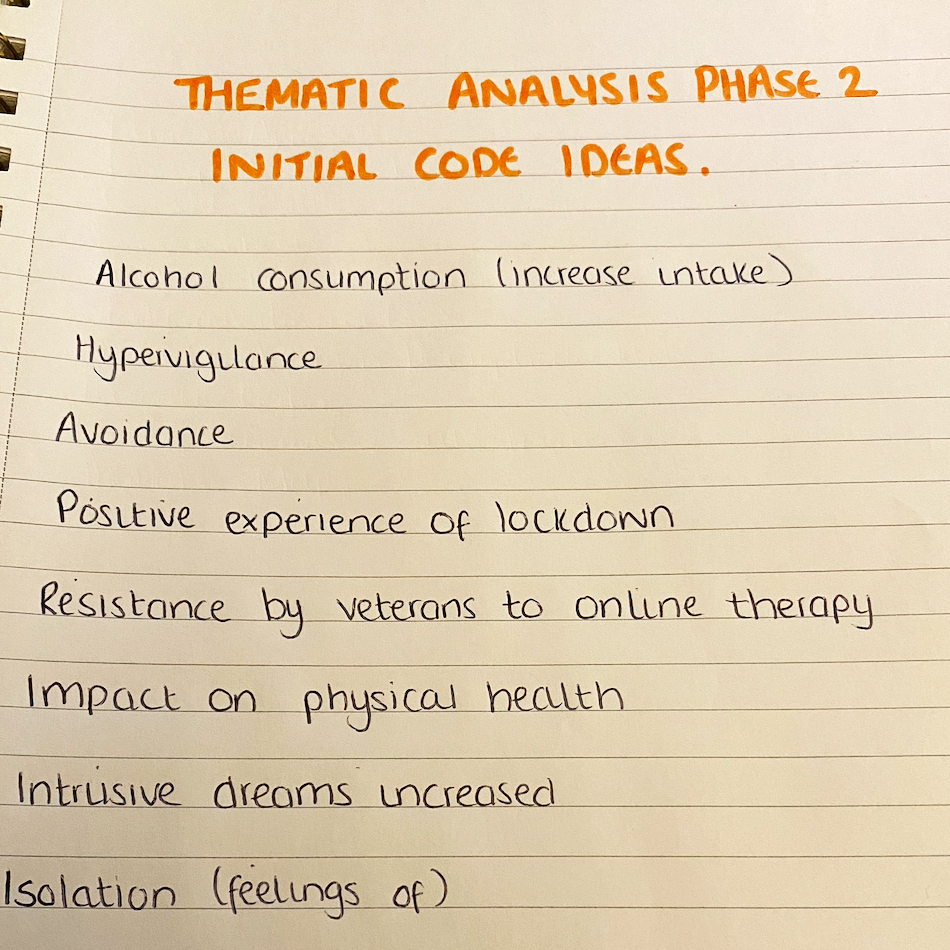 THEMATIC ANALYSIS PHASE 2
INITIAL CODE IDEAS.
Alcohol consumption (increase intake)
Hypervigilance
Avoidance
Positive experience of lockdown
Resistance by veterans to online therapy
Impact on physical health
Intrusive dreams increased
Isolation (feelings of)